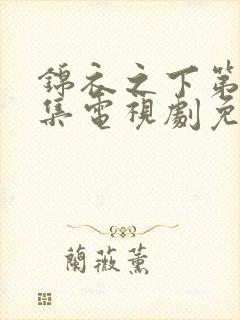 錦衣之下第
集電視劇免
蘭薇薰